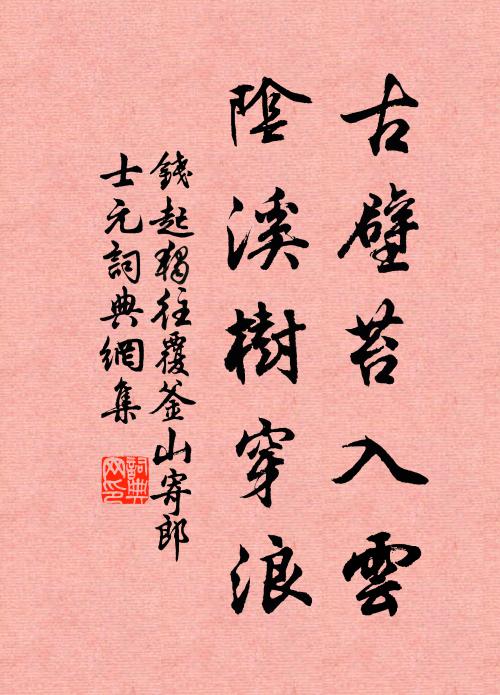 古壁苔入雲
陰溪樹穿浪
錢起獨往覆釜山寄郎
士元詞典網集
詞典網印